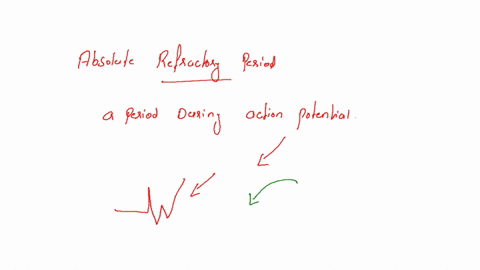 Absolute Refractory Period
a Period During action potential.